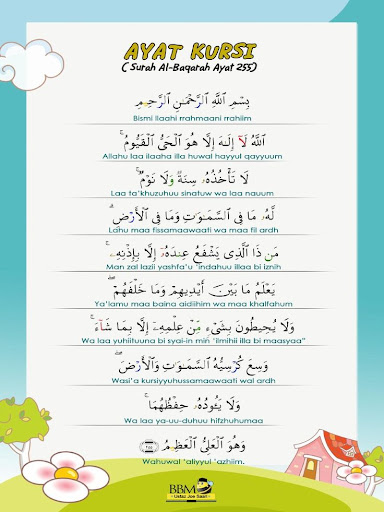 AYAT KURSI
( Surah Al-Baqarah Ayat 255)
بِسْمِ ٱللَّهِ ٱلرَّحْمَـٰنِ ٱلرَّحِيمِ
Bismi llaahi rrahmaani rrahiim
ٱللَّهُ لَآ إِلَـٰهَ إِلَّا هُوَ ٱلْحَىُّ ٱلْقَيُّومُ ۚ
Allahu laa ilaaha illa huwal hayyul qayyuum
لَا تَأْخُذُهُۥ سِنَةٌ وَلَا نَوْمٌ ۚ
Laa ta'khuzuhuu sinatuw wa laa nauum
لَّهُۥ مَا فِى ٱلسَّمَـٰوَٰتِ وَمَا فِى ٱلْأَرْضِ ۗ
Lahu maa fissamaawaati wa maa fil ardh
مَن ذَا ٱلَّذِى يَشْفَعُ عِندَهُۥٓ إِلَّا بِإِذْنِهِۦ ۚ
Man zal lazii yashfa'u "indahuu illaa bi iznih
يَعْلَمُ مَا بَيْنَ أَيْدِيهِمْ وَمَا خَلْفَهُمْ ۖ
Ya'lamu maa baina aidiihim wa maa khalfahum
وَلَا يُحِيطُونَ بِشَىْءٍ مِّنْ عِلْمِهِۦٓ إِلَّا بِمَا شَآءَ ۚ
Wa laa yuhiituuna bi syai-in min 'ilmihii illa bi maasyaa"
وَسِعَ كُرْسِيُّهُ ٱلسَّمَـٰوَٰتِ وَٱلْأَرْضَ ۖ
Wasi'a kursiyyuhussamaawaati wal ardh
وَلَا يَـُٔودُهُۥ حِفْظُهُمَا ۚ
Wa laa ya-uu-duhuu hifzhuhumaa
وَهُوَ ٱلْعَلِىُّ ٱلْعَظِيمُ ٢٥٥
Wahuwal 'aliyyul 'azhiim.
BBM
Ustaz Joe Saari